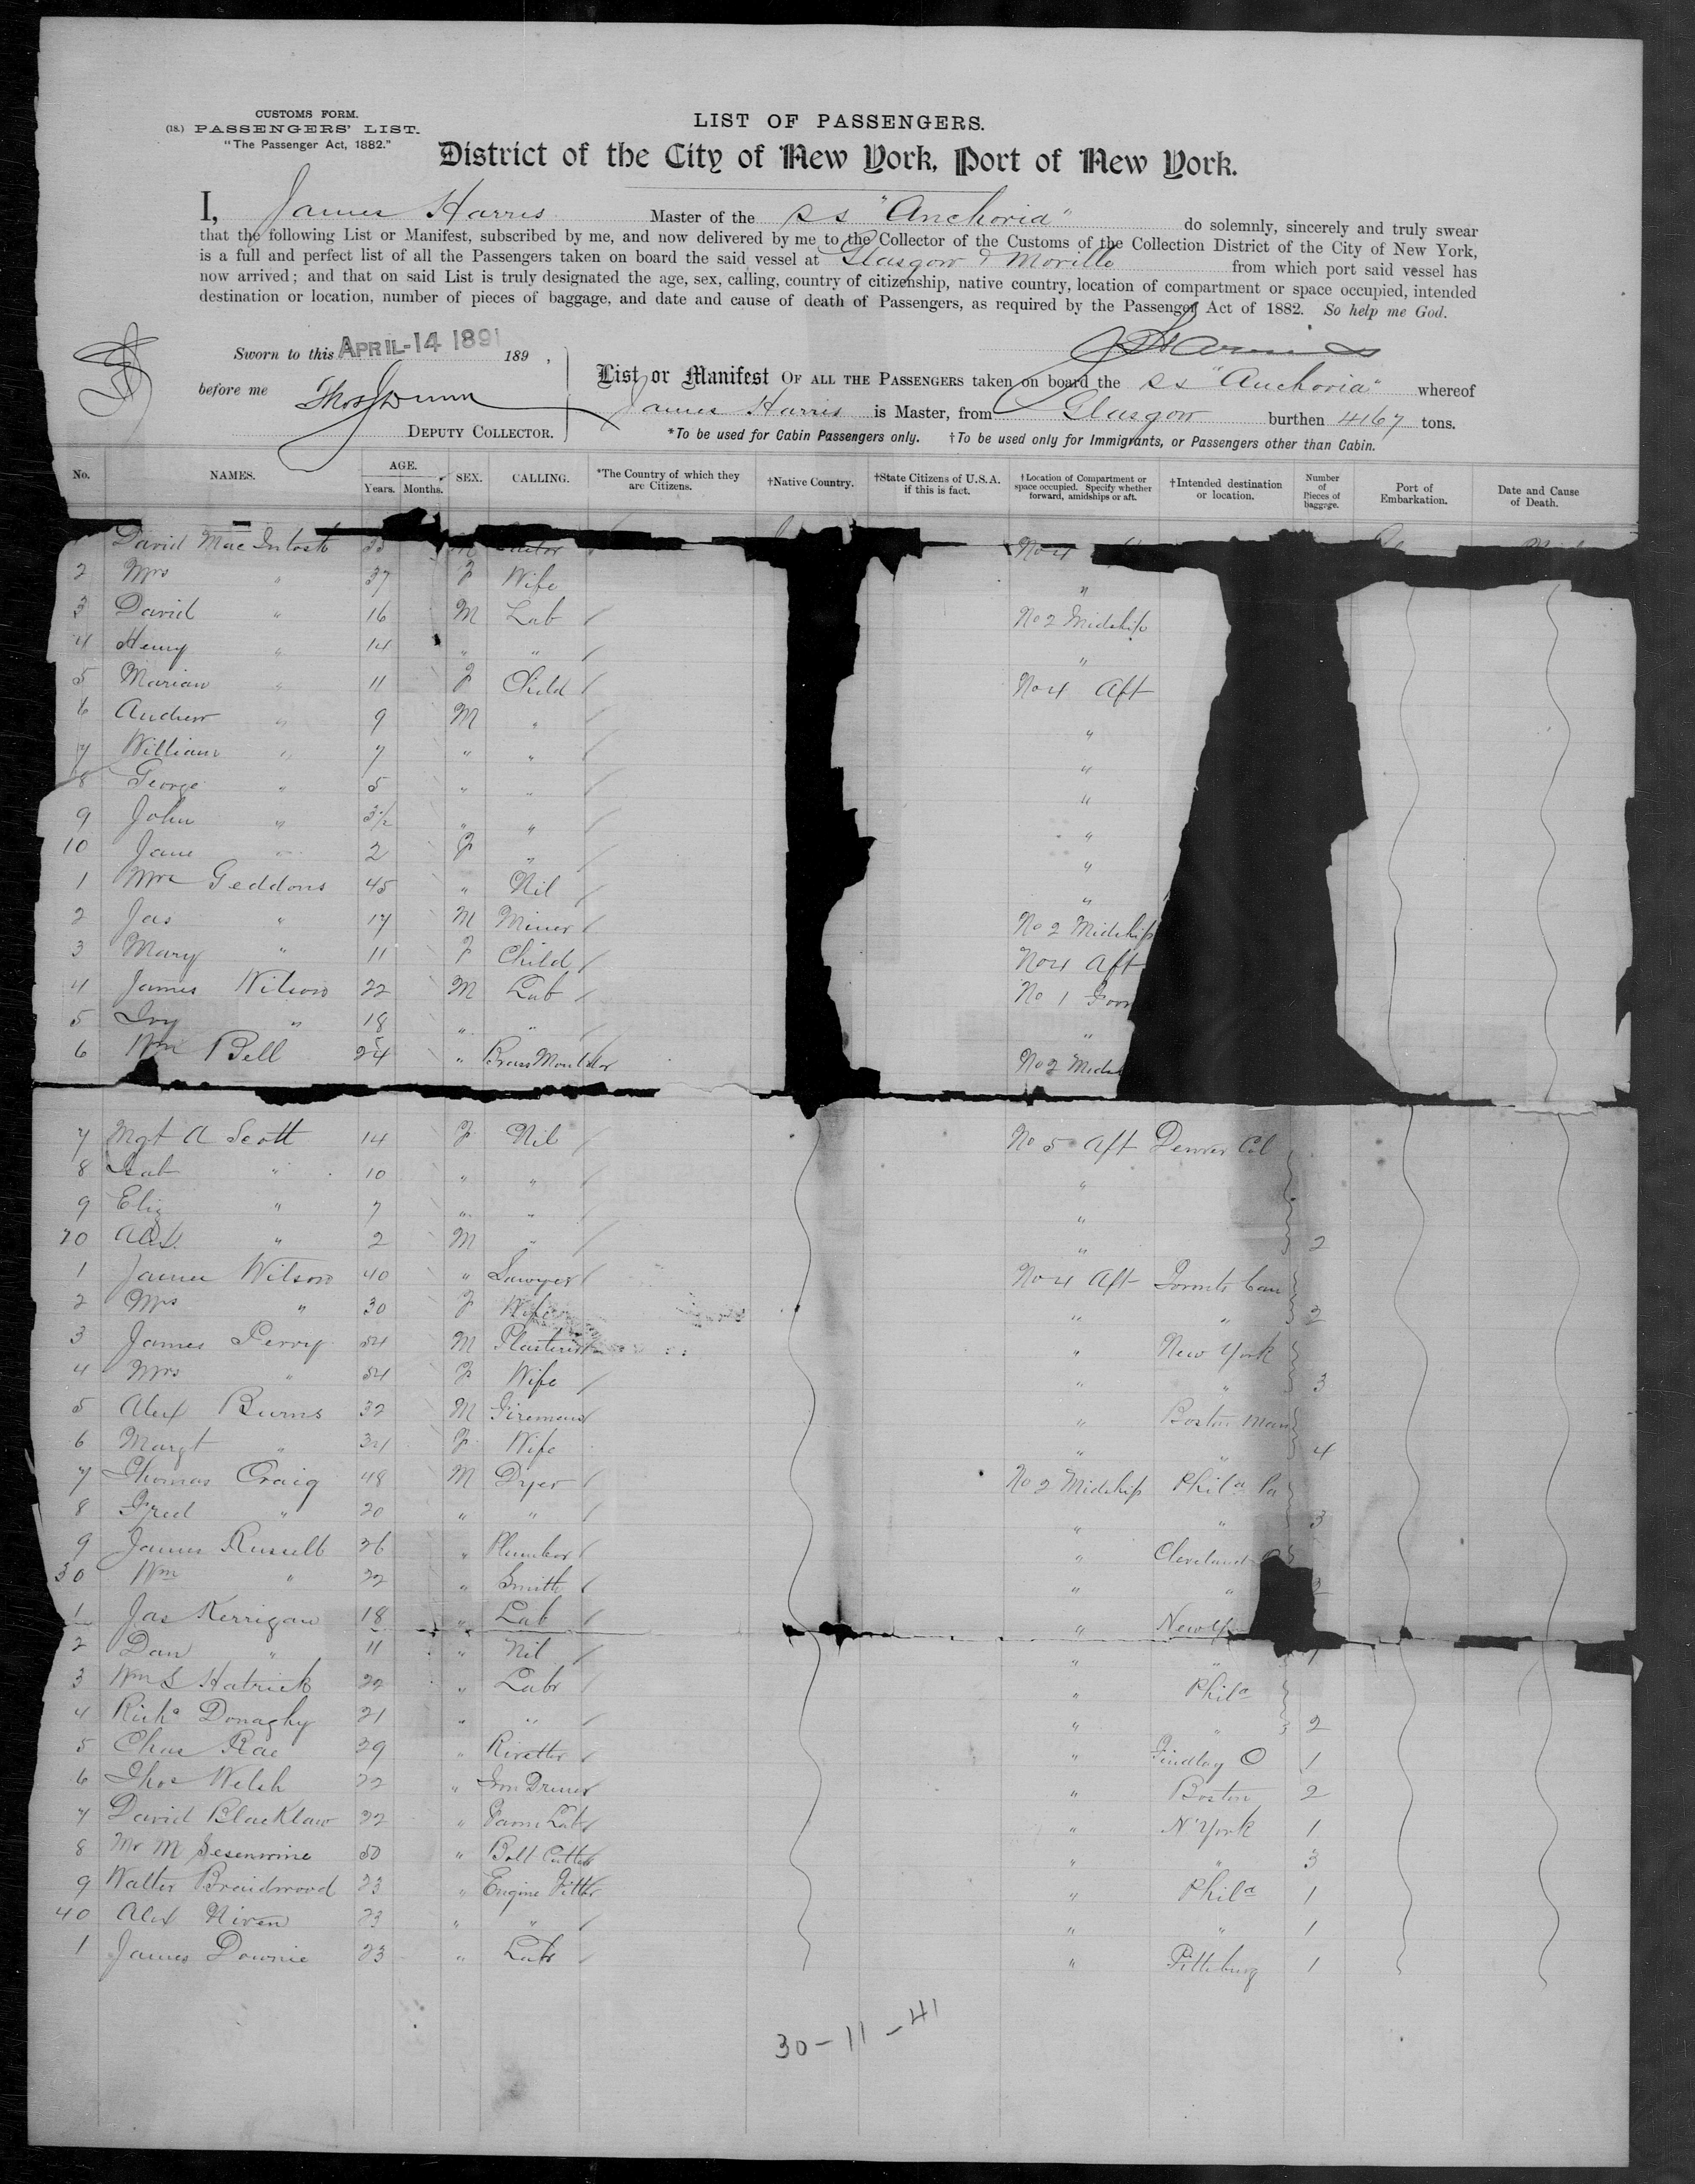 CUSTOMS FORM.
(18.) PASSENGERS' LIST.
"The Passenger Act, 1882."
LIST OF PASSENGERS.
District of the City of New York, Port of New York.
I, James Harris Master of the SS "Anchoria" do solemnly, sincerely and truly swear
that the following List or Manifest, subscribed by me, and now delivered by me to the Collector of the Customs of the Collection District of the City of New York,
is a full and perfect list of all the Passengers taken on board the said vessel at Glasgow & Moville from which port said vessel has
now arrived; and that on said List is truly designated the age, sex, calling, country of citizenship, native country, location of compartment or space occupied, intended
destination or location, number of pieces of baggage, and date and cause of death of Passengers, as required by the Passenger Act of 1882. So help me God.
J Harris
Sworn to this APRIL-14 1891 189 ,
before me Thos J Dunn
DEPUTY COLLECTOR.
List or Manifest OF ALL THE PASSENGERS taken on board the SS "Anchoria" whereof
James Harris is Master, from Glasgow burthen 4167 tons.
*To be used for Cabin Passengers only. †To be used only for Immigrants, or Passengers other than Cabin.
No. NAMES. AGE. Years. Months. SEX. CALLING. *The Country of which they are Citizens. †Native Country. †State Citizens of U.S.A. if this is fact. †Location of Compartment or space occupied. Specify whether forward, amidships or aft. †Intended destination or location. Number of Pieces of baggage. Port of Embarkation. Date and Cause of Death.
David MacIntosh M No 4
2 Mrs " 37 F Wife "
3 David " 16 M Lab No 2 Midship
4 Henry " 14 " " "
5 Marian " 11 F Child No 4 Aft
6 Andrew " 9 M " "
7 William " 7 " " "
8 George " 5 " " "
9 John " 3½ " " "
10 Jane " 2 F " "
1 Mrs Geddons 45 " Nil "
2 Jas " 17 M Miner No 2 Midship
3 Mary " 11 F Child No 4 Aft
4 James Wilson 22 M Lab No 1
5 " 18 " " "
6 Wm Bell 24 " Brass Moulder No 2 Mids
7 Mgt A Scott 14 F Nil No 5 Aft Denver Col
8 Isab " 10 " " "
9 Eliz " 7 " " "
20 Alex " 2 M " " 2
1 James Wilson 40 " Sawyer No 4 Aft Toronto Can
2 Mrs " 30 F Wife " " 2
3 James Perry 54 M Plasterer " New York
4 Mrs " 54 F Wife " " 3
5 Alex Burns 32 M Fireman " Boston Mass
6 Margt " 34 F Wife " " 4
7 Thomas Craig 48 M Dyer No 2 Midship Phila Pa
8 Fred " 20 " " " " 3
9 James Russell 26 " Plumber " Cleveland O
30 Wm " 22 " Smith " " 2
1 Jas Kerrigan 18 " Lab " New Y
2 Dan " 11 " Nil " " 1
3 Wm S Hatrick 22 " Labr " Phila
4 Richd Donaghy 21 " " " " 2
5 Chas Rae 29 " Rivetter " Findlay O 1
6 Thos Welsh 22 " " Boston 2
7 David Blacklaw 22 " Farm Labr " N York 1
8 Mr M 50 " Bolt Cutter " " 3
9 Walter Braidwood 23 " Engine Fitter " Phila 1
40 Alex Niven 23 " " " " 1
1 James Downie 23 " Labr " Pittsburg 1
30-11-41